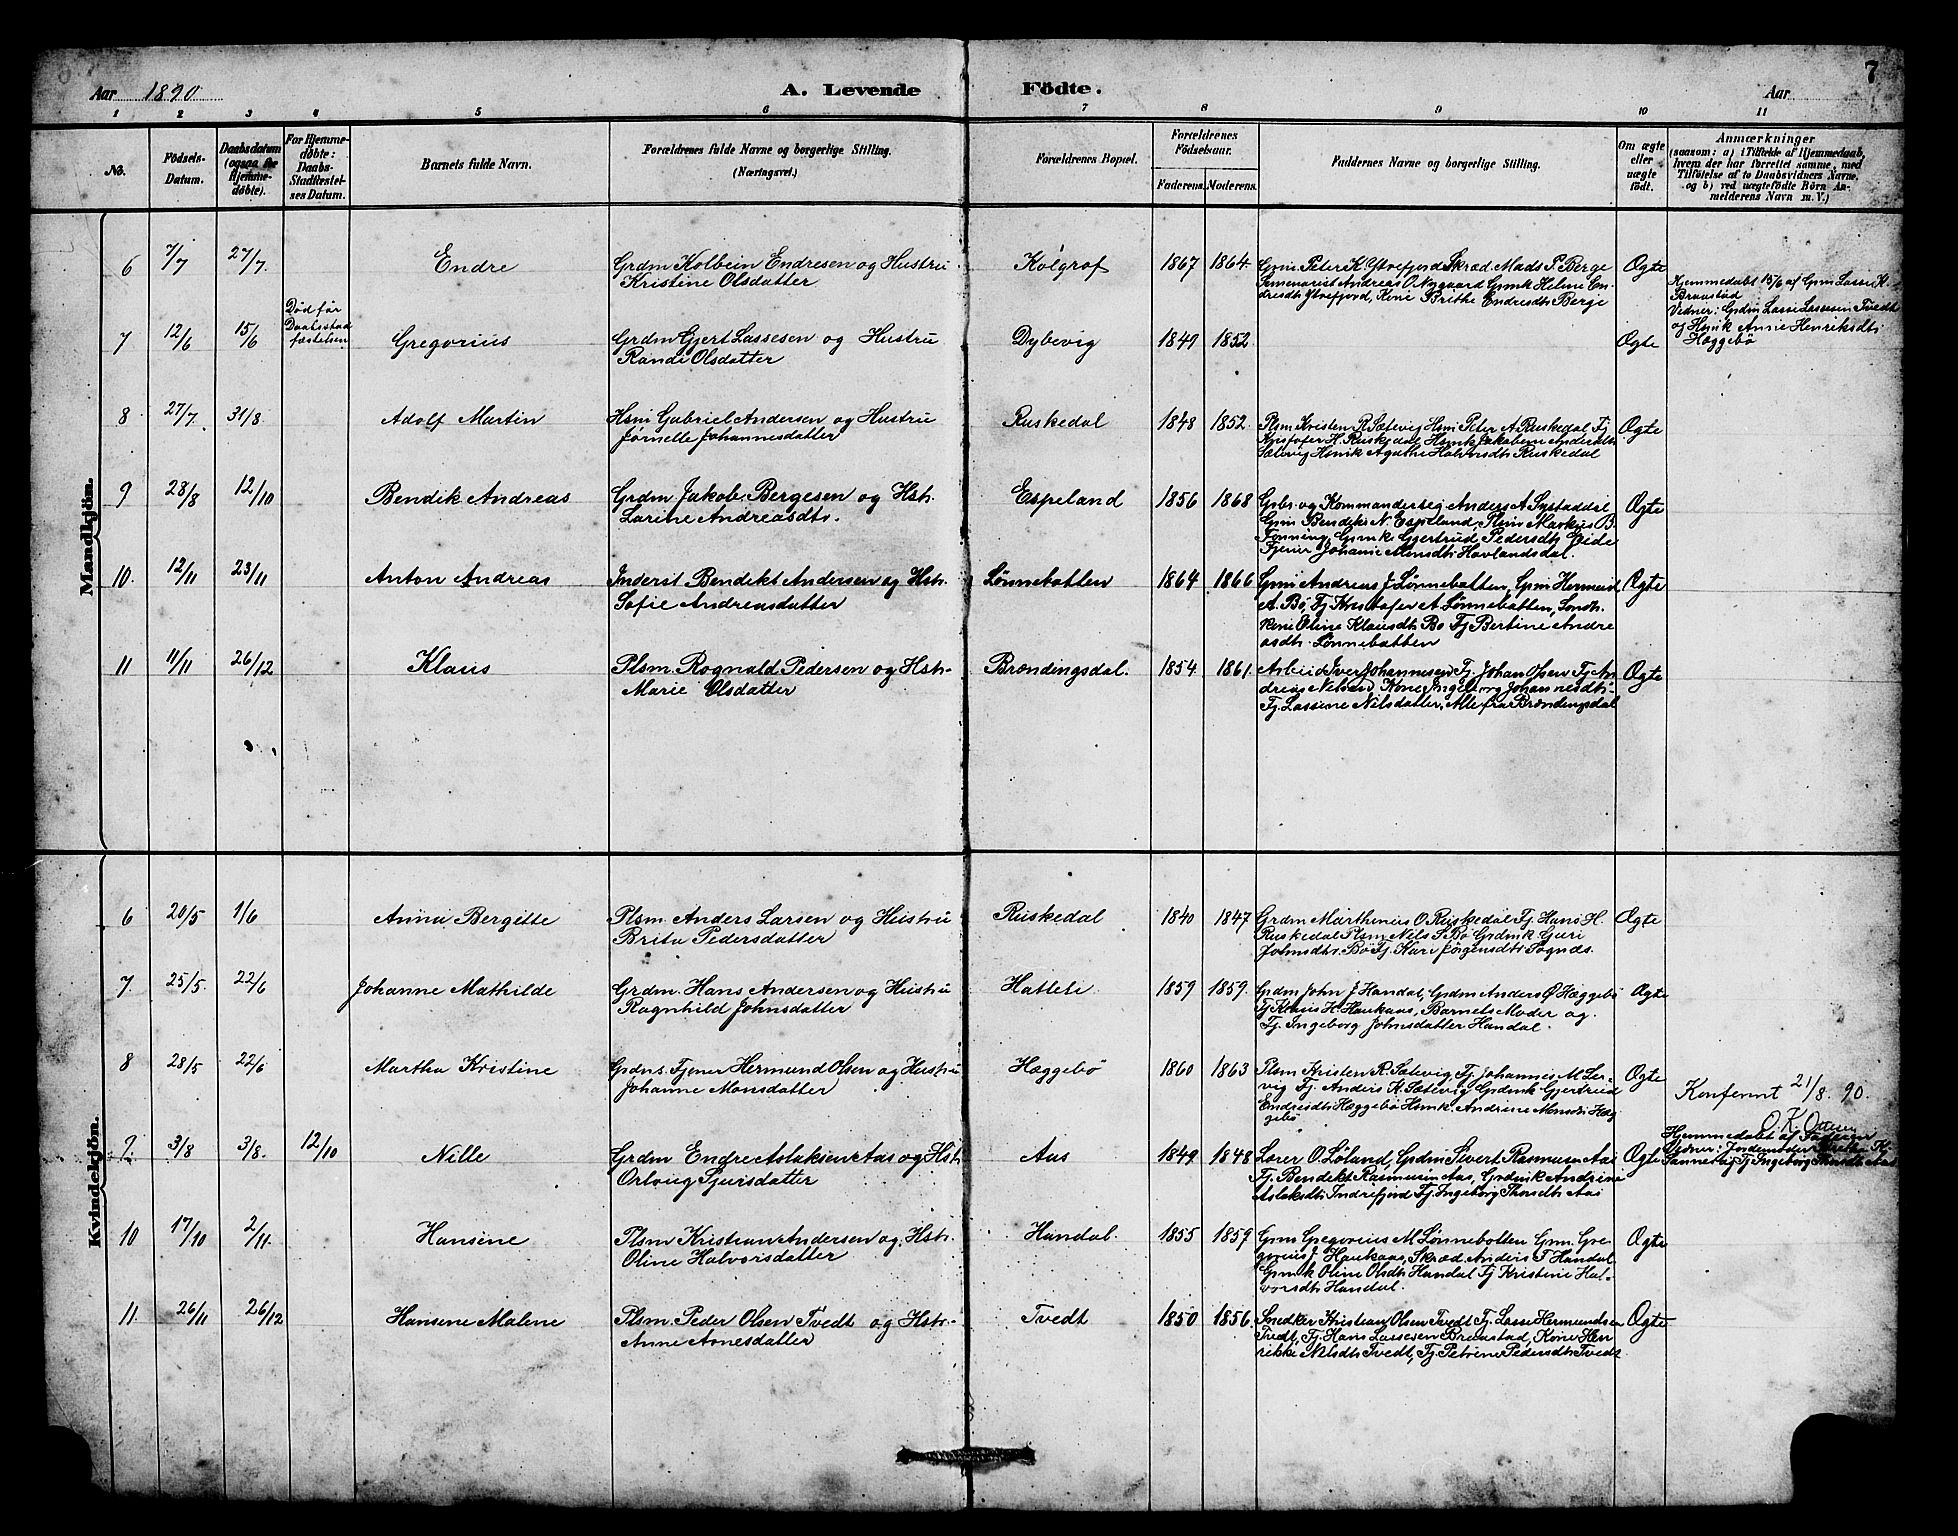 Aar 1890 A. Levende Födte. Aar 7
1 2 3 4 5 6 7 8 9 10 11
No.
Födsels-
Datum.
Daabsdatum
(ogsaa for
Hjemme-
döbte).
For Hjemme-
döbte:
Daabs-
Stadfæstel-
ses Datum.
Barnets fulde Navn.
Forældrenes fulde Navne og borgerlige Stilling.
(Næringsvei.)
Forældrenes Bopæl.
Forældrenes
Födselsaar.
Faderens. Moderens.
Faddernes Navne og borgerlige Stilling.
Om ægte
eller
uægte
födt.
Anmærkninger
(saasom: a) i Tilfælde af Hjemmedaab,
hvem der har forrettet samme, med
Tilföielse af to Daabsvidners Navne,
og b) ved uægtefödte Börn An-
melderens Navn m. V.)
Mandkjön.
6 7/7 27/7. Endre
Grdm Kolbein Endresen og Hustru
Kristine Olsdatter
Kolgrof 1867 1864.
Grm. Peter K Ytrefjord Skræd. Mads P. Berge
Semenarist Andreas O. Nygaard Grmk Helene En-
dresdt Ytrefjord, Kone Brithe Endresdt Berge
Ægte
7 12/6 15/6
Død før
Daabsstad
fæstelsen
Gregorius
Grdm Gjert Lassesen og Hustru
Randi Olsdatter
Dybevig 1849 1852.
Ægte
Hjemmedøbt 15/6 af Grm Lasse K.
Braustad
Vidner: Grdm Lasse Lassesen Tvedt
og Hsmk Anne Henriksdtr
Hæggebø
8 27/7. 31/8. Adolf Martin
Hsm Gabriel Andersen og Hustru
Jørnelle Johannesdatter
Ruskedal 1848 1852.
Plsm Kristen R. Sætevig Hsm Peter A Ruskedal Tj
Kristofer H. Ruskedal Hsmk Jakobine Andersdtr
Sætevig Hsmk Agathe Halvorsdt Ruskedal
Ægte
9 28/8 12/10 Bendik Andreas
Grdm. Jakob. Bergesen og Hstr.
Larine Andreasdtr.
Espeland 1856 1868
Grbr. og Kommandersrg Anders A Systaddal
Grm Bendik N. Espeland, Plsm Markus B.
Tonning, Grmk Gjertrud Pedersdtr Eide
Tjener Johanne Monsdtr Havlandsdal.
Ægte
10. 12/11 23/11 Anton Andreas
Inderst Bendikt Andersen og Hstr.
Sofie Andreasdatter
Lønnebotten 1864 1866
Grm Andreas J. Lønnebotten, Grm Hermund
A. Bø, Tj Kristofer A Lønnebotten,
Kone Oline Klausdtr Bø Tj Bertine Andre
asdtr. Lønnebotten
Ægte
11 11/11 26/12 Klaus
Plsm. Rognald Pedersen og Hstr
Marie Olsdatter
Brøndingsdal. 1854 1861.
Arbeid Iver Johannesen Tj. Johan Olsen Tj An
dreas Nilsen Kone Ingeborg Johannesdtr
Tj. Lassine Nilsdatter, Alle fra Brøndingsdal
Ægte
Kvindekjön.
6 20/5 1/6 Anna Bergitte
Plsm. Anders Larsen og Hustru
Brita Pedersdatter
Ruskedal 1840 1847
Grdm Marthinus O. Ruskedal Tj. Hans H.
Ruskedal Plsm Nils S Bø Grdmk Guri
Johnsdtr. Bø Tj. Kari Jørgensdtr Sognæs.
Ægte
7. 25/5. 22/6 Johanne Mathilde
Grdm. Hans Andersen og Hustru
Ragnhild Johnsdatter
Hatlele. 1859 1859.
Grdm John J Handal, Grdm Anders Ø Hæggebø
Tj Klaus H. Haukaas, Barnets Moder og.
Tj. Ingeborg Johnsdatter Handal.
Ægte
8 28/5 22/6 Martha Kristine
Grdns. Tjener Hermund Olsen og Hustru
Johanne Monsdatter
Hæggebø 1860 1863
Plsm Kristen R. Sætevig, Tj. Johannes M Le-
vig Tj. Anders K. Sætevig Grdmk Gjertrud
Endresdtr Hæggebø Hsmk. Andrine Monsdtr Hæg
gebø
Ægte
Konferert 21/8. 90.
O. K. Ottesen
9. 3/8 3/8. 12/10 Nille
Grdm Endre Aslaksen Aas og Hstr.
Orloug Sjursdatter
Aas 1849 1848
Lærer O. Løland, Grdm Sivert Rasmusen Aas
Tj. Bendikt Rasmusen Aas, Grdmk Andrine
Aslaksdtr Indrefjord Tj. Ingeborg Thorsdtr Aas
Ægte
Hjemmedøbt af Faderen
Vidner: Jordemoder
Sannes og Tj. Ingeborg Thorsdtr Aas
10 17/10 2/11. Hansine
Plsm Kristian Andersen og. Hstr.
Oline Halvorsdatter
Handal. 1855 1859
Grm Gregorius M Lønnebotten Grm. Gre-
gorius J. Haukaas, Skræd. Anders T Handal
Grmk Oline Olsdt Handal Tj Kristine Hal-
vorsdtr Handal.
Ægte
11. 26/11 26/12 Hansine Malene
Plsm. Peder Olsen Tvedt og Hstr.
Anne Aonesdatter
Tvedt 1850 1856.
Snedker Kristian Olsen Tvedt Tj. Lasse Hermundsen
Tvedt, Tj. Hans Lassesen Braustad, Kone Hen-
rikke Nilsdt Tvedt, Tj. Petrine Pedersdtr Tvedt
Ægte